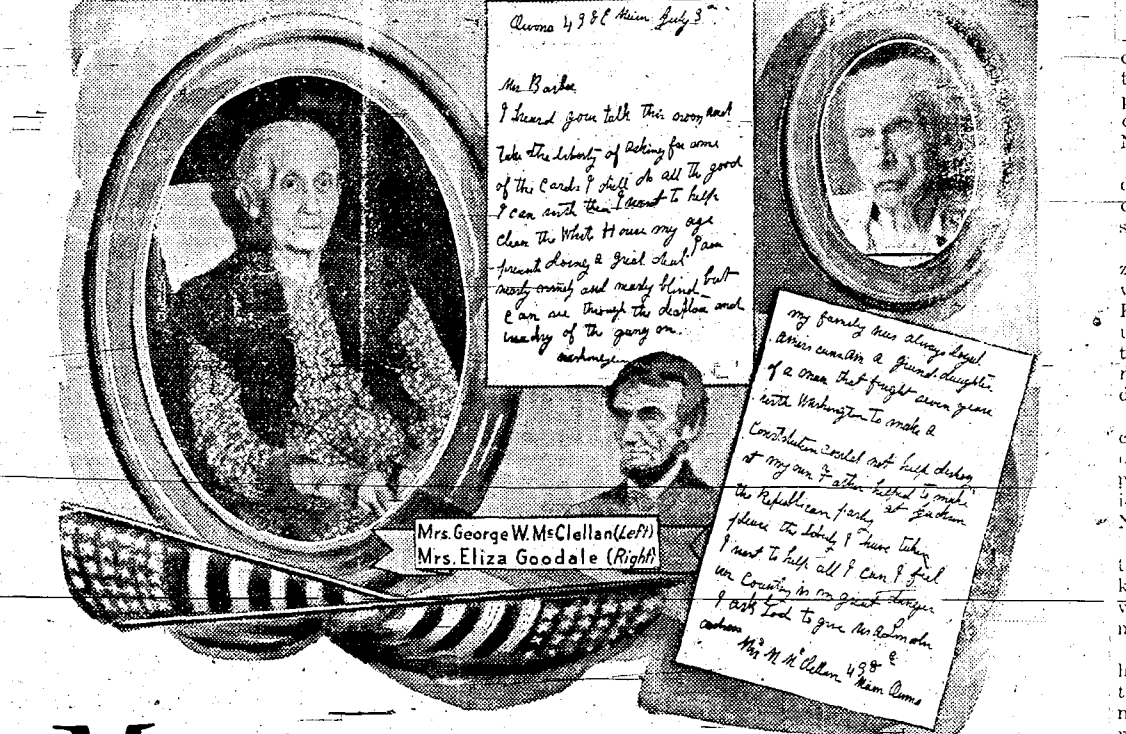 Owosso 498 E Main July 3rd
Mr Barbee
I heard your talk this noon and
Take the liberty of asking for some
of the Cards I will do all the good
I can with them I want to help
clean the White House my age
prevents doing a great deal I am
nearly ninety and nearly blind but
Can see through the and
of the gang on.
My family was always loyal
Americans Am a grand-daughter
of a man that fought seven years
with Washington To make a
Constitution could not help
at my own Father helped to make
the Republican party at Jackson
please the liberty I have taken
I want to help all I can I feel
our Country is in great danger
I ask God to give us a Lincoln
address
Mrs M McClellan 498 E
Main
Mrs. George W. McClellan (Left)
Mrs. Eliza Goodale (Right)
M